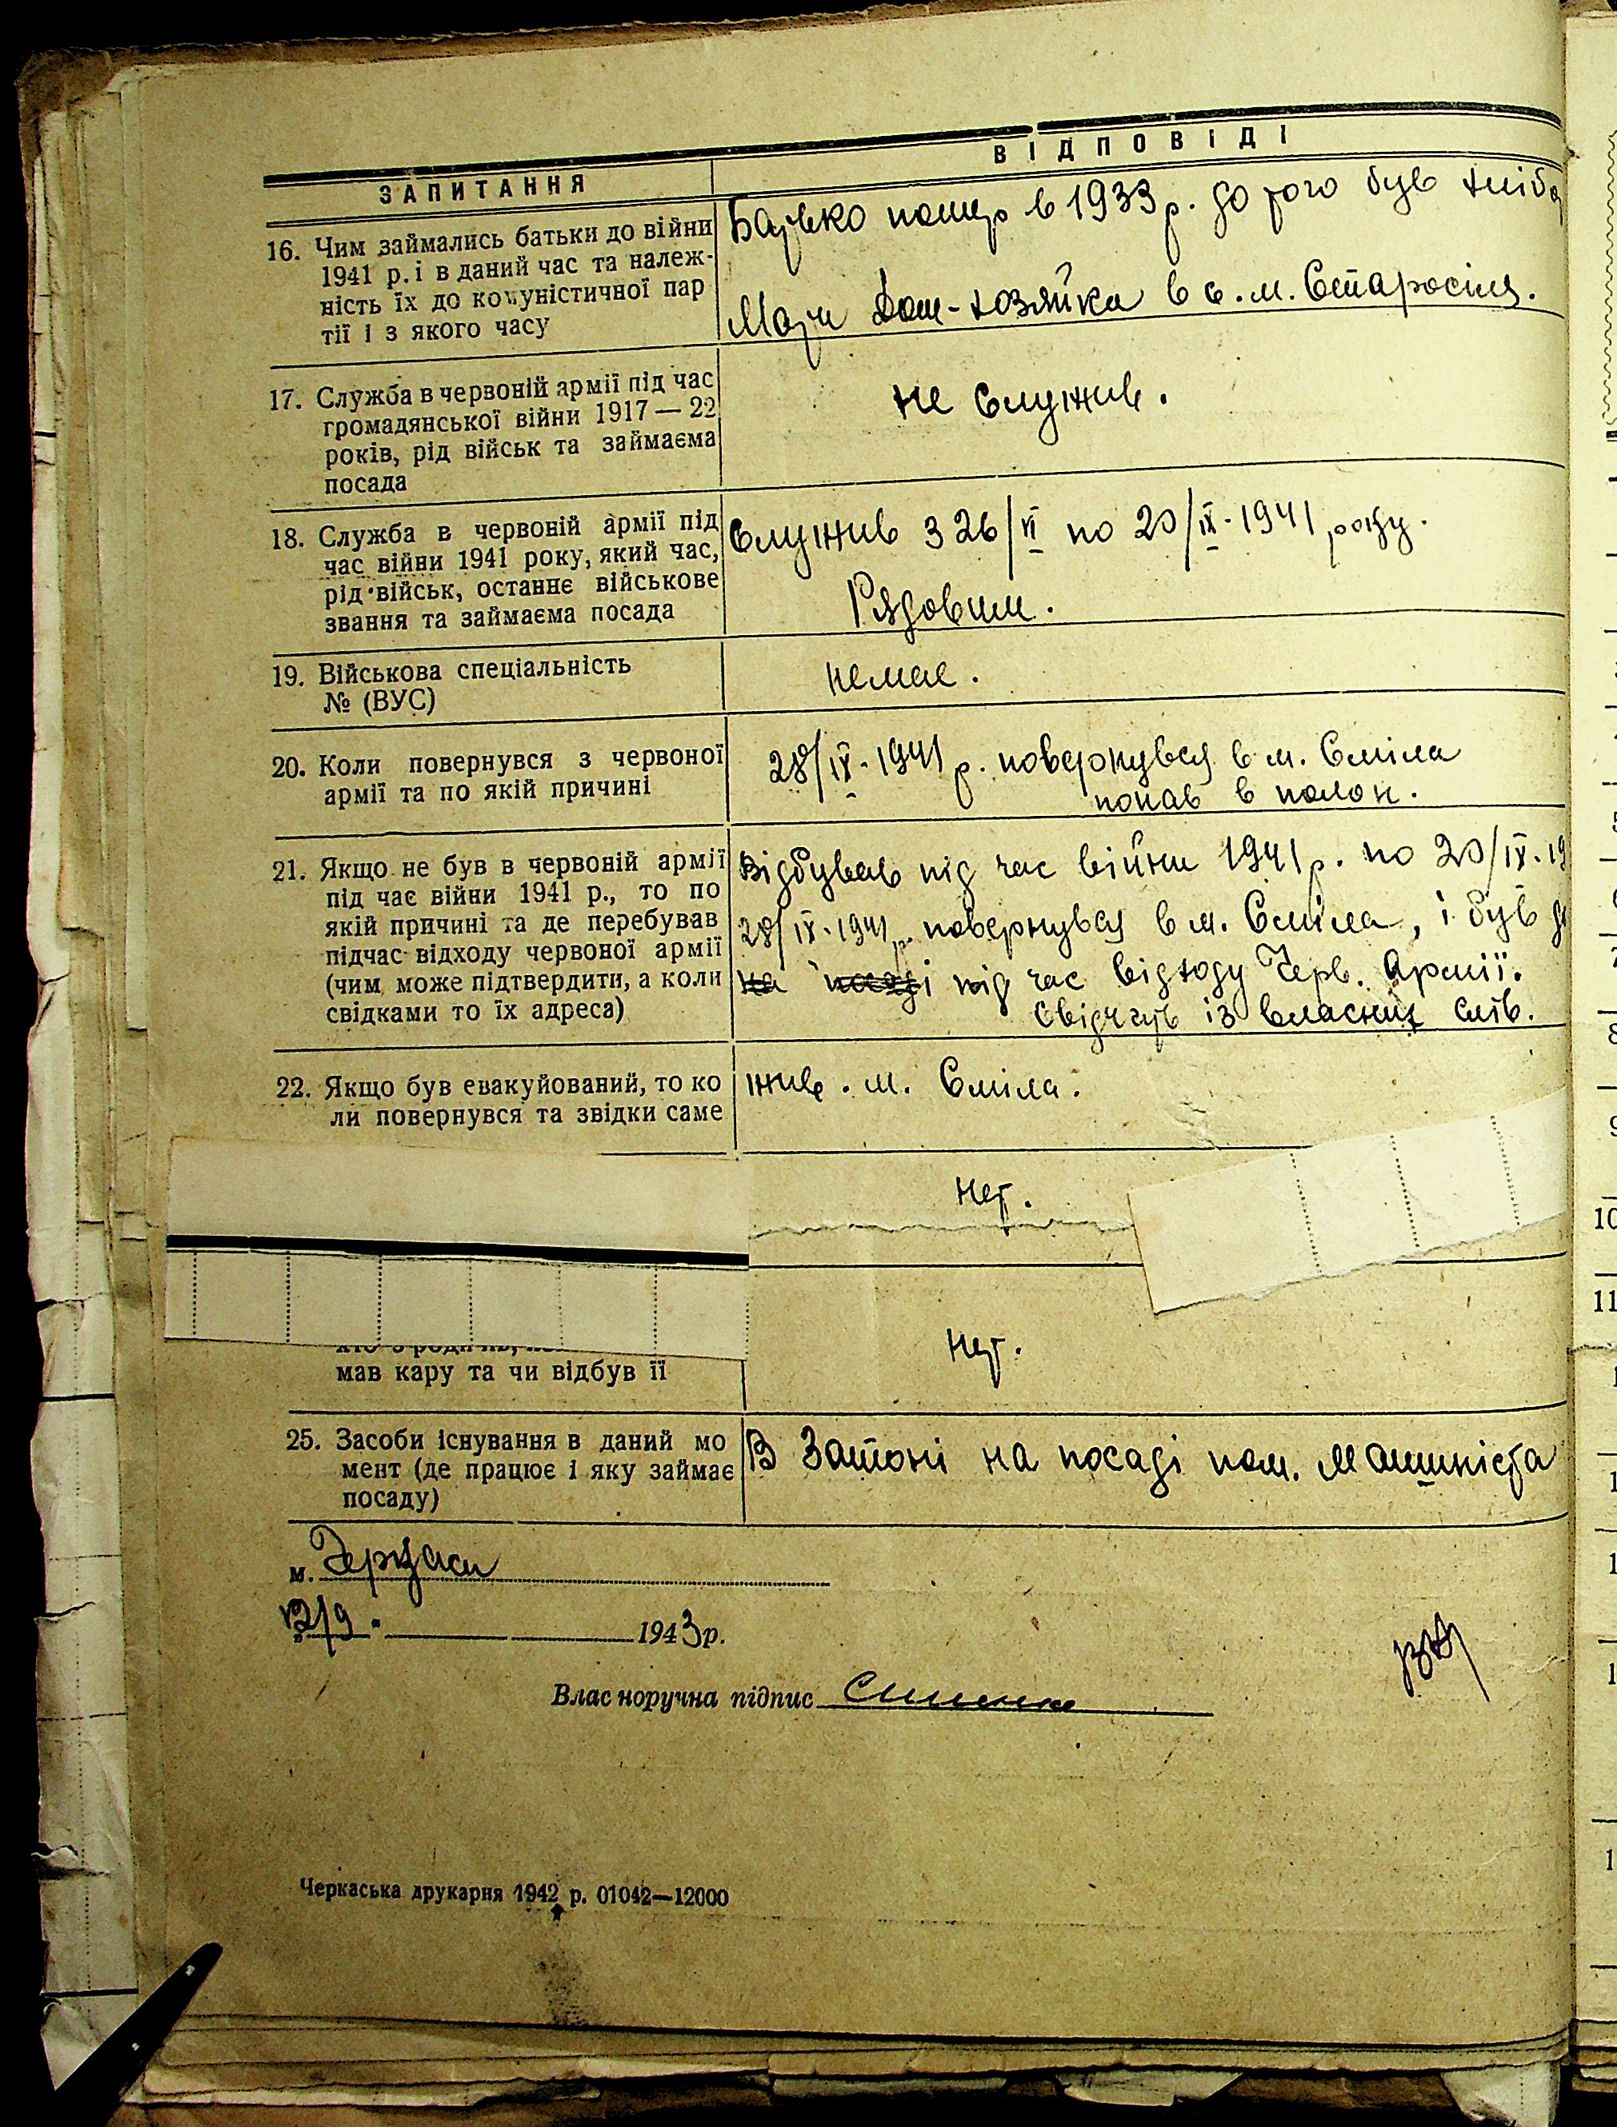 ЗАПИТАННЯ
ВІДПОВІДІ
16. Чим займались батьки до війни
1941 р. і в даний час та належ-
ність їх до комуністичної пар
тії і з якого часу
Батько помер в 1933 р. до того був хліб
Мати Дом-хозяйка в с. м. Старосілля.
17. Служба в червоній армії під час
громадянської війни 1917 — 22
років, рід військ та займаєма
посада
не служив.
18. Служба в червоній армії під
час війни 1941 року, який час,
рід військ, останнє військове
звання та займаєма посада
Служив з 26/VI по 20/IX-1941 року.
Рядовим.
19. Військова спеціальність
№ (ВУС)
немає.
20. Коли повернувся з червоної
армії та по якій причині
28/IX-1941 р. повернувся в м. Сміла
попав в полон.
21. Якщо не був в червоній армії
під час війни 1941 р., то по
якій причині та де перебував
підчас відходу червоної армії
(чим може підтвердити, а коли
свідками то їх адреса)
Відбував під час війни 1941 р. по 20/IX-19
28/IX-1941 р. повернувся в м. Сміла, і був
на посаді під час відходу Черв. Армії.
Свідчить із власних слів.
22. Якщо був евакуйований, то ко
ли повернувся та звідки саме
жив. м. Сміла.
Нет.
мав кару та чи відбув її
Нет.
25. Засоби існування в даний мо
мент (де працює і яку займає
посаду)
В Затоні на посаді пом. Машиніста
м. Черкаси
12/9. 1943 р.
Власноручна підпис
Черкаська друкарня 1942 р. 01042—12000
10
11